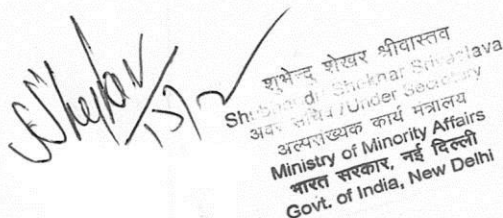 SShekhar
13/12
शुभेन्दु शेखर श्रीवास्तव
Shubhendu Shekhar Srivastava
अवर सचिव /Under Secretary
अल्पसंख्यक कार्य मंत्रालय
Ministry of Minority Affairs
भारत सरकार, नई दिल्ली
Govt. of India, New Delhi